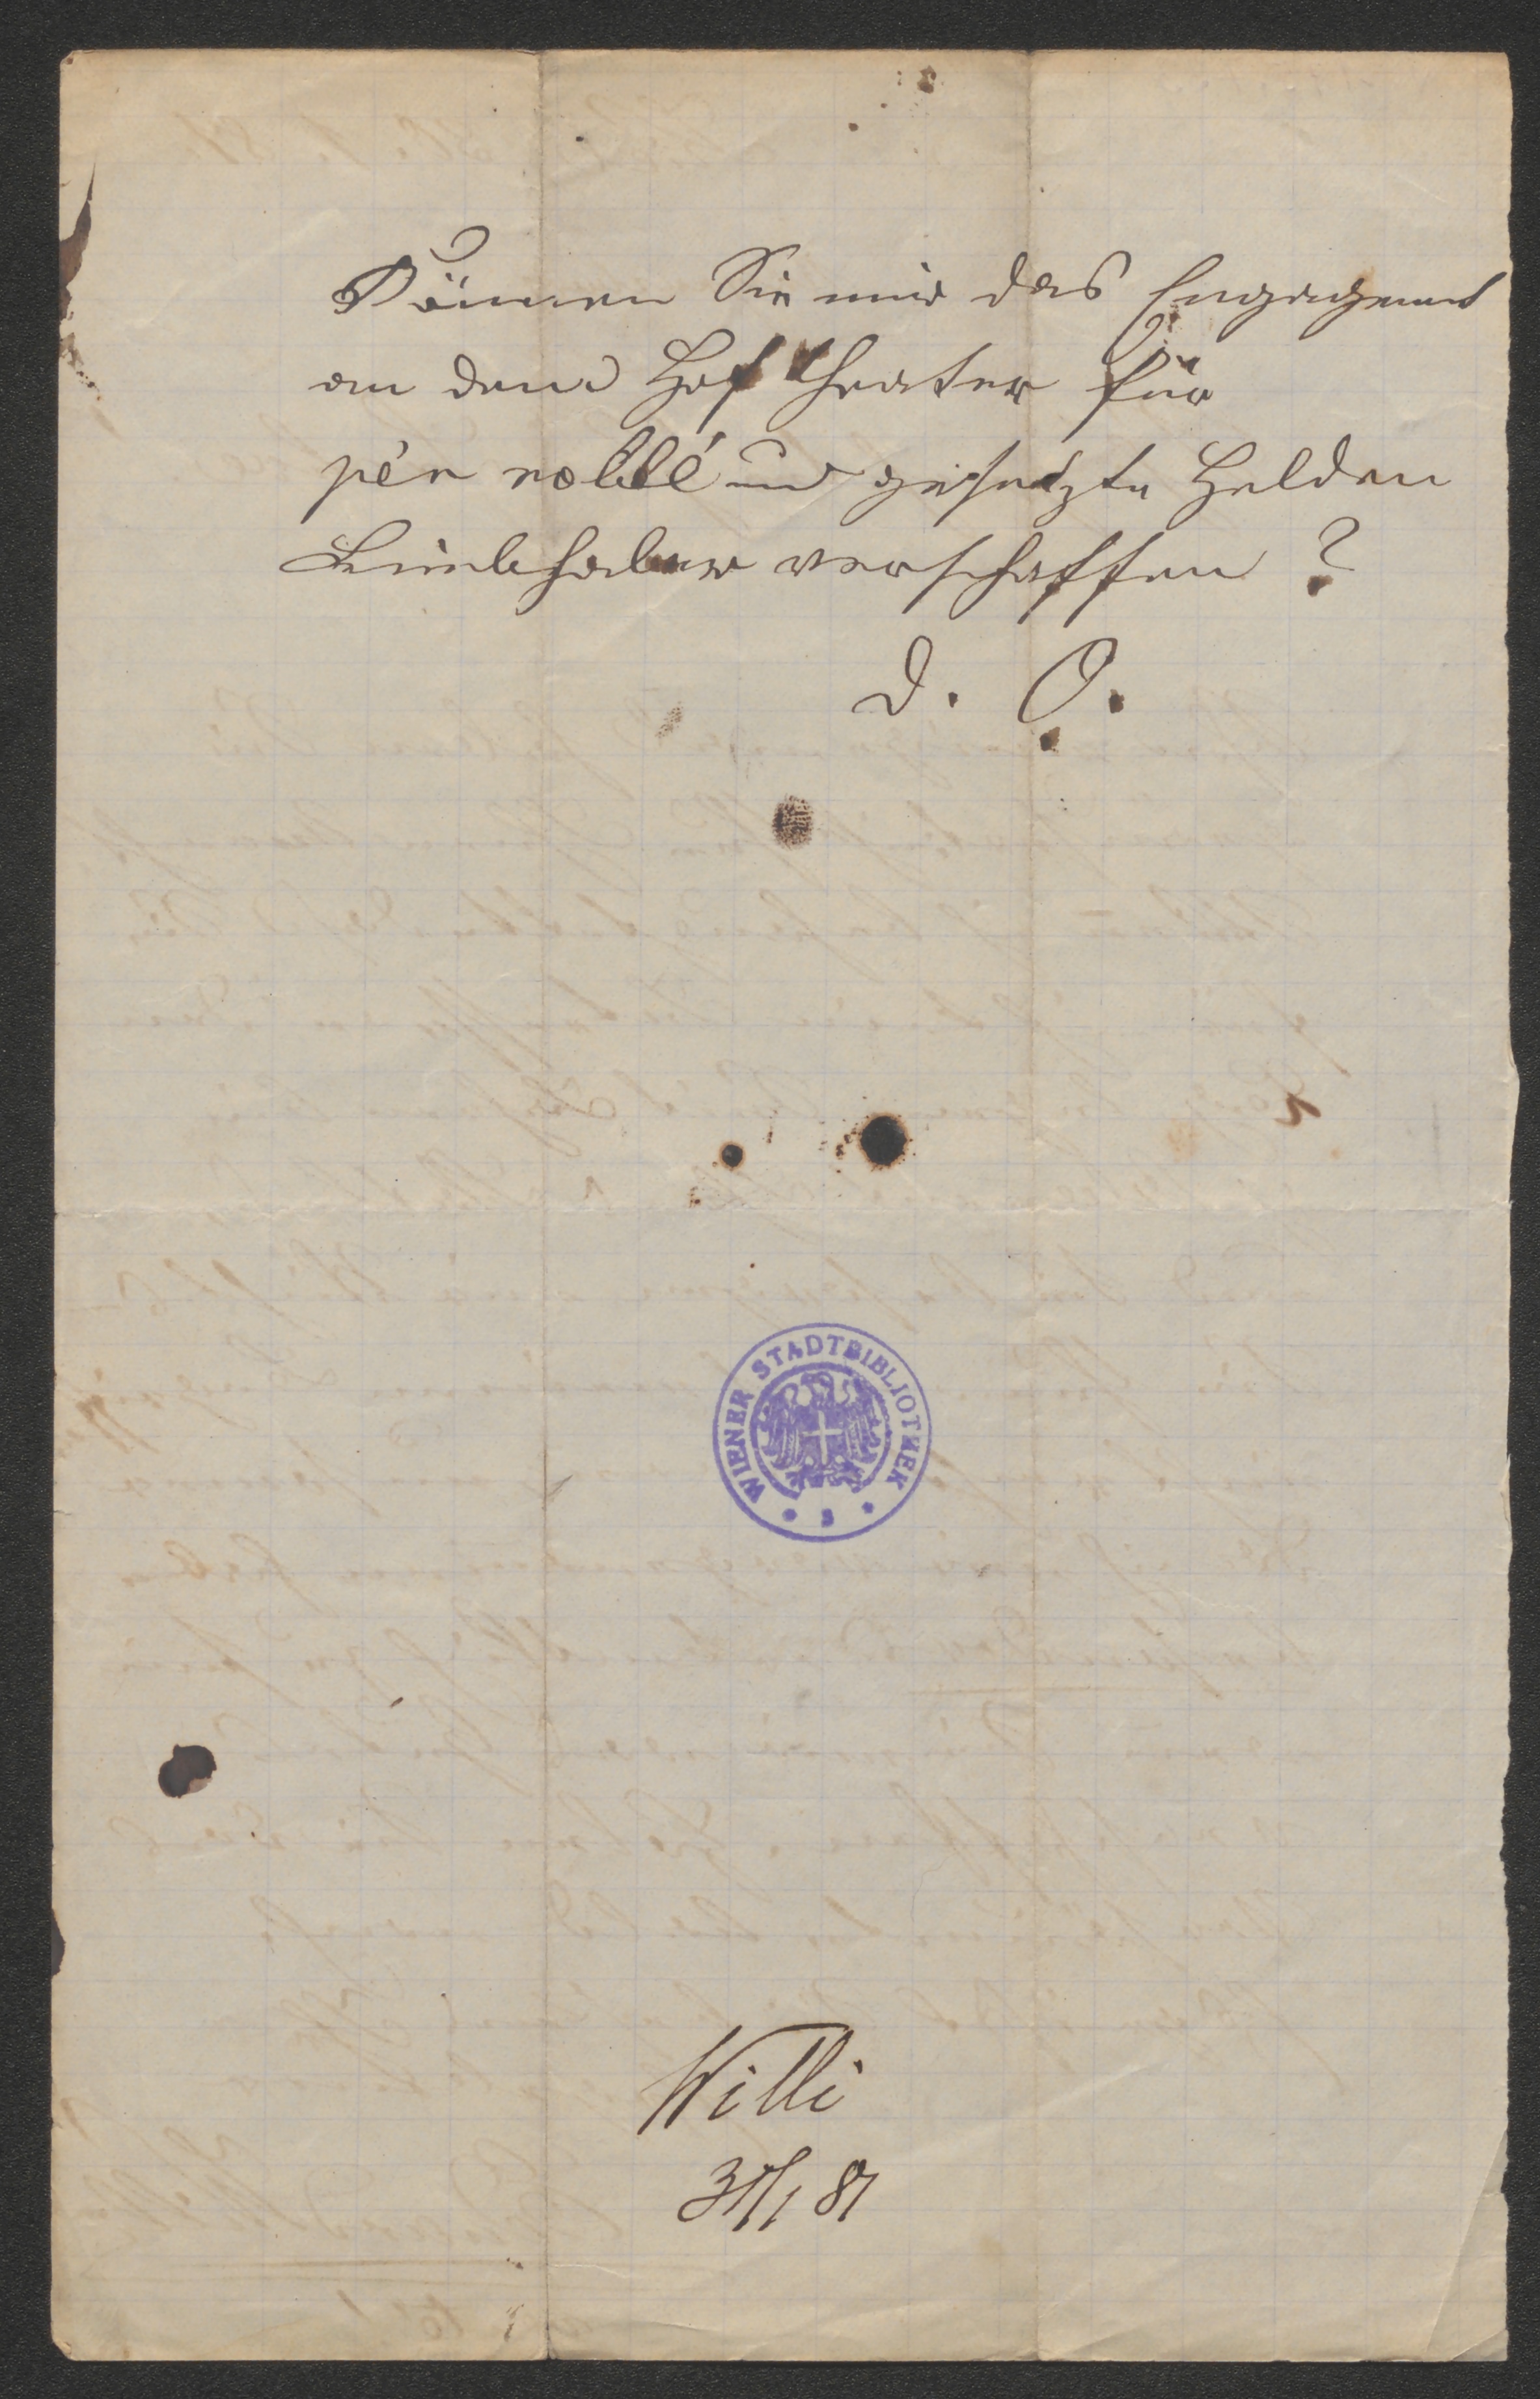 Können Sie mir das Engagement
an dem Hoftheater für
pér noblé und gesetzte Helden
Liebhaber verschaffen?
D. O.
WIENER STADTBIBLIOTHEK
Willi
31/1 81